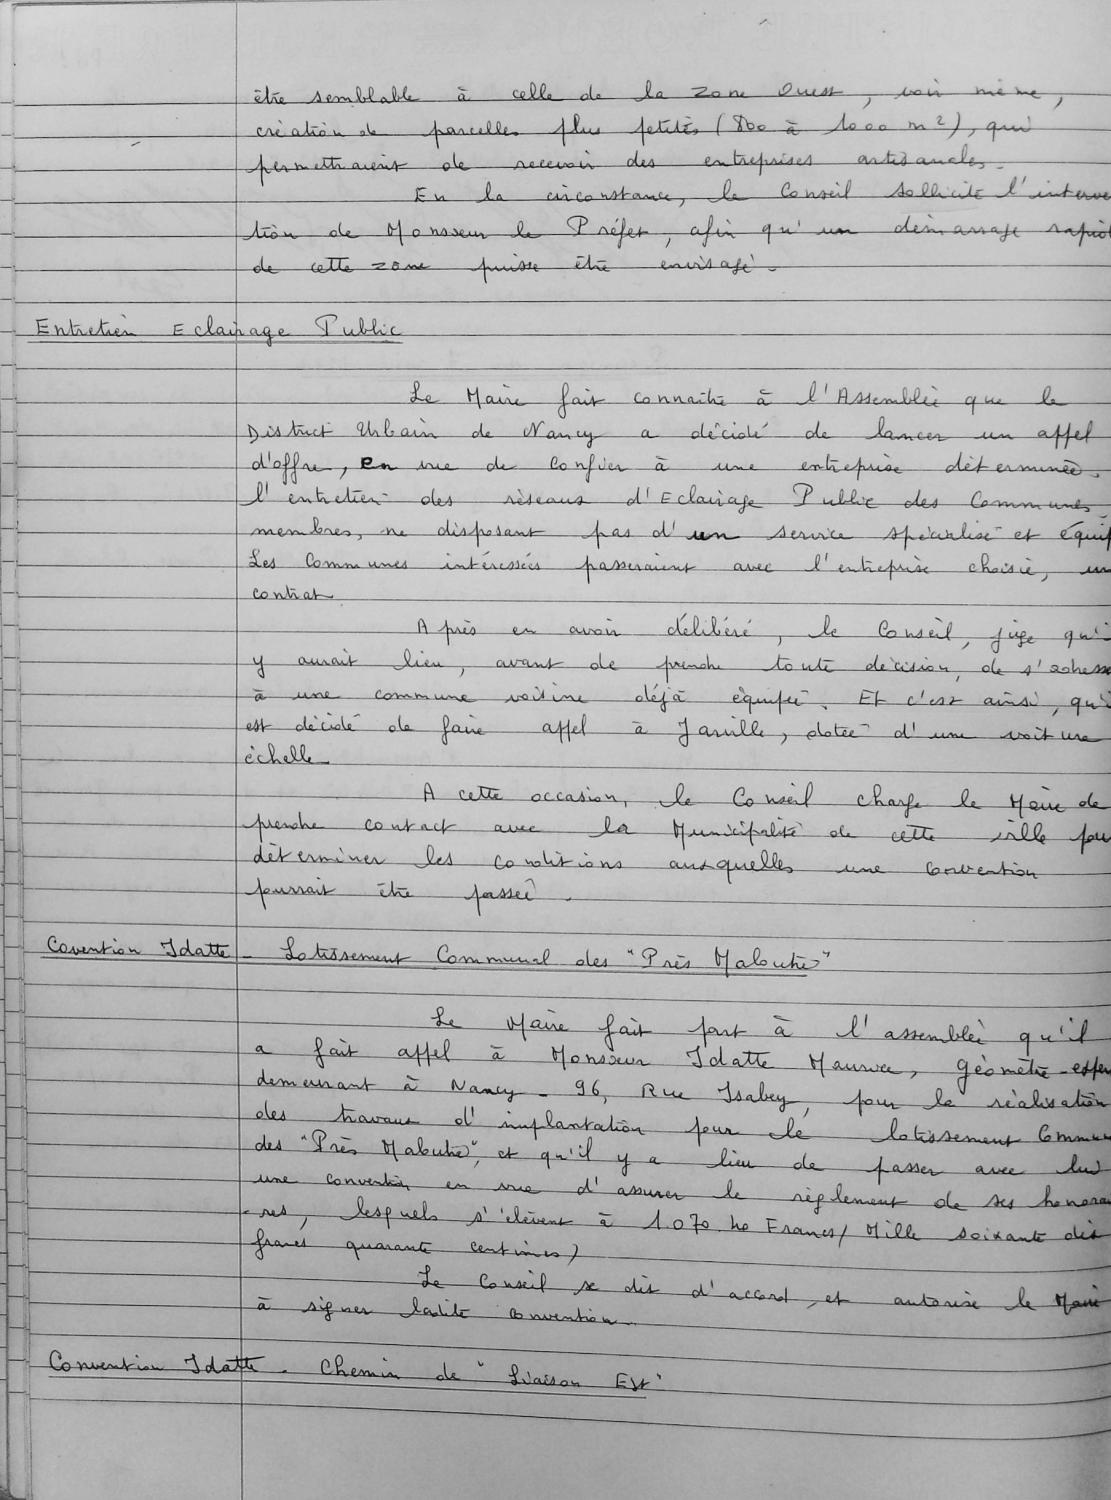 être semblable à celle de la zone Ouest, voir même,
création de parcelles plus petites (800 à 1000 m²), qui
permettraient de recevoir des entreprises artisanales.
En la circonstance, le Conseil sollicite l'interve
tion de Monsieur le Préfet, afin qu'un démarrage rapid
de cette zone puisse être envisagé.
Entretien Eclairage Public
Le Maire fait connaître à l'Assemblée que le
District Urbain de Nancy a décidé de lancer un appel
d'offre, en vue de confier à une entreprise déterminée
l'entretien des réseaux d'Eclairage Public des Communes
membres, ne disposant pas d'un service spécialisé et équip
Les Communes intéressées passeraient avec l'entreprise choisie, un
contrat
Après en avoir délibéré, le Conseil, juge qu'i
y aurait lieu, avant de prendre toute décision, de s'adress
à une commune voisine déjà équipée. Et c'est ainsi, qu'i
est décidé de faire appel à Jarville, dotée d'une voiture
échelle
A cette occasion, le Conseil charge le Maire de
prendre contact avec la Municipalité de cette ville pou
déterminer les conditions auxquelles une convention
pourrait être passée.
Covention Idatte - Lotissement Communal des "Près Malouté"
Le Maire fait part à l'assemblée qu'il
a fait appel à Monsieur Idatte Maurice, Géomètre-exper
demeurant à Nancy - 96, Rue Isabey, pour la réalisation
des travaux d'implantation pour le lotissement Commun
des "Près Malouté", et qu'il y a lieu de passer avec lui
une convention en vue d'assurer le règlement de ses honorai
-res, lesquels s'élèvent à 1.070.40 Francs (Mille soixante dix
francs quarante centimes)
Le Conseil se dit d'accord, et autorise le Maire
à signer ladite convention.
Convention Idatte - Chemin de "Liaison Est"